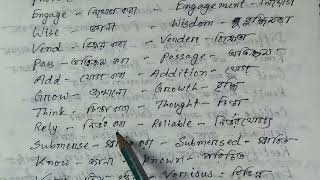 Engage - নিয়োগ করা - Engagement - নিয়োগ
Wise - জ্ঞানী - Wisdom -
Vend - বিক্রয় করা - Vendor - বিক্রেতা
Pass - অতিক্রম করা - Passage - অতিক্রম
Add - যোগ করা - Addition - যোগ
Grow - জন্মানো - Growth - বৃদ্ধি
Think - চিন্তা করা - Thought - চিন্তা
Rely - নির্ভর করা - Reliable - নির্ভরযোগ্য
Submerse - করা - Submersed -
Know - জানা - Known - পরিচিত
- Various - বিভিন্ন